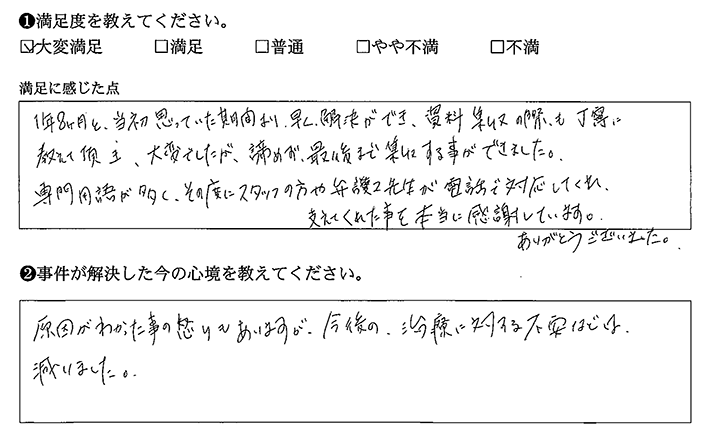 ❶満足度を教えてください。
☑大変満足 □満足 □普通 □やや不満 □不満
満足に感じた点
1年8ヶ月と、当初思っていた期間より、早く解決ができ、資料集収の際も丁寧に
教えて頂き、大変でしたが、諦めず、最後まで集収する事ができました。
専門用語が多く、その度にスタッフの方や弁護士先生が電話で対応してくれ、
支えてくれた事を本当に感謝しています。
ありがとうございました。
❷事件が解決した今の心境を教えてください。
原因がわかった事の怒りもありますが、今後の、治療に対する不安は
減りました。